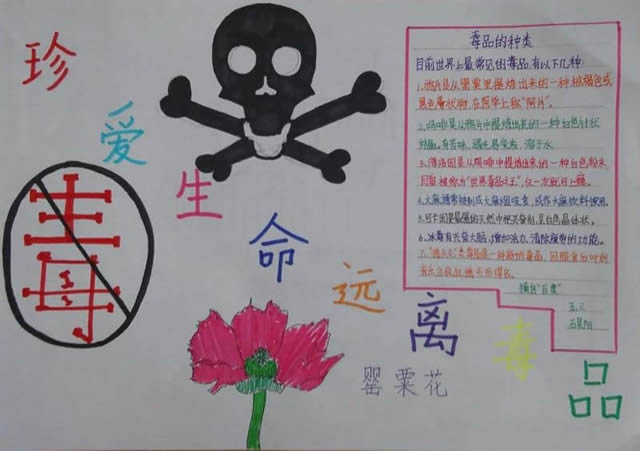 珍爱生命远离毒品
毒
罂粟花
毒品的种类
目前世界上最常见的毒品,有以下几种:
1、鸦片是从罂粟里提炼出来的一种棕褐色或
黑色膏状物,在医学上称"阿片"。
2、吗啡是从鸦片中提炼出来的一种白色针状
结晶。有苦味、遇光易变质,溶于水
3、海洛因是从吗啡中提炼出来的一种白色粉末,
被称为"世界毒品之王",仅一次就可上瘾。
4、大麻通常被制成大麻烟吸食,或作大麻饮料饮用。
5、可卡因是最强的天然中枢兴奋剂,呈白色晶体状。
6、冰毒有兴奋大脑、增加活力、消除疲劳的功能。
7、类毒品是一种新的毒品,因服食
音乐
摘自"百度"
五、三